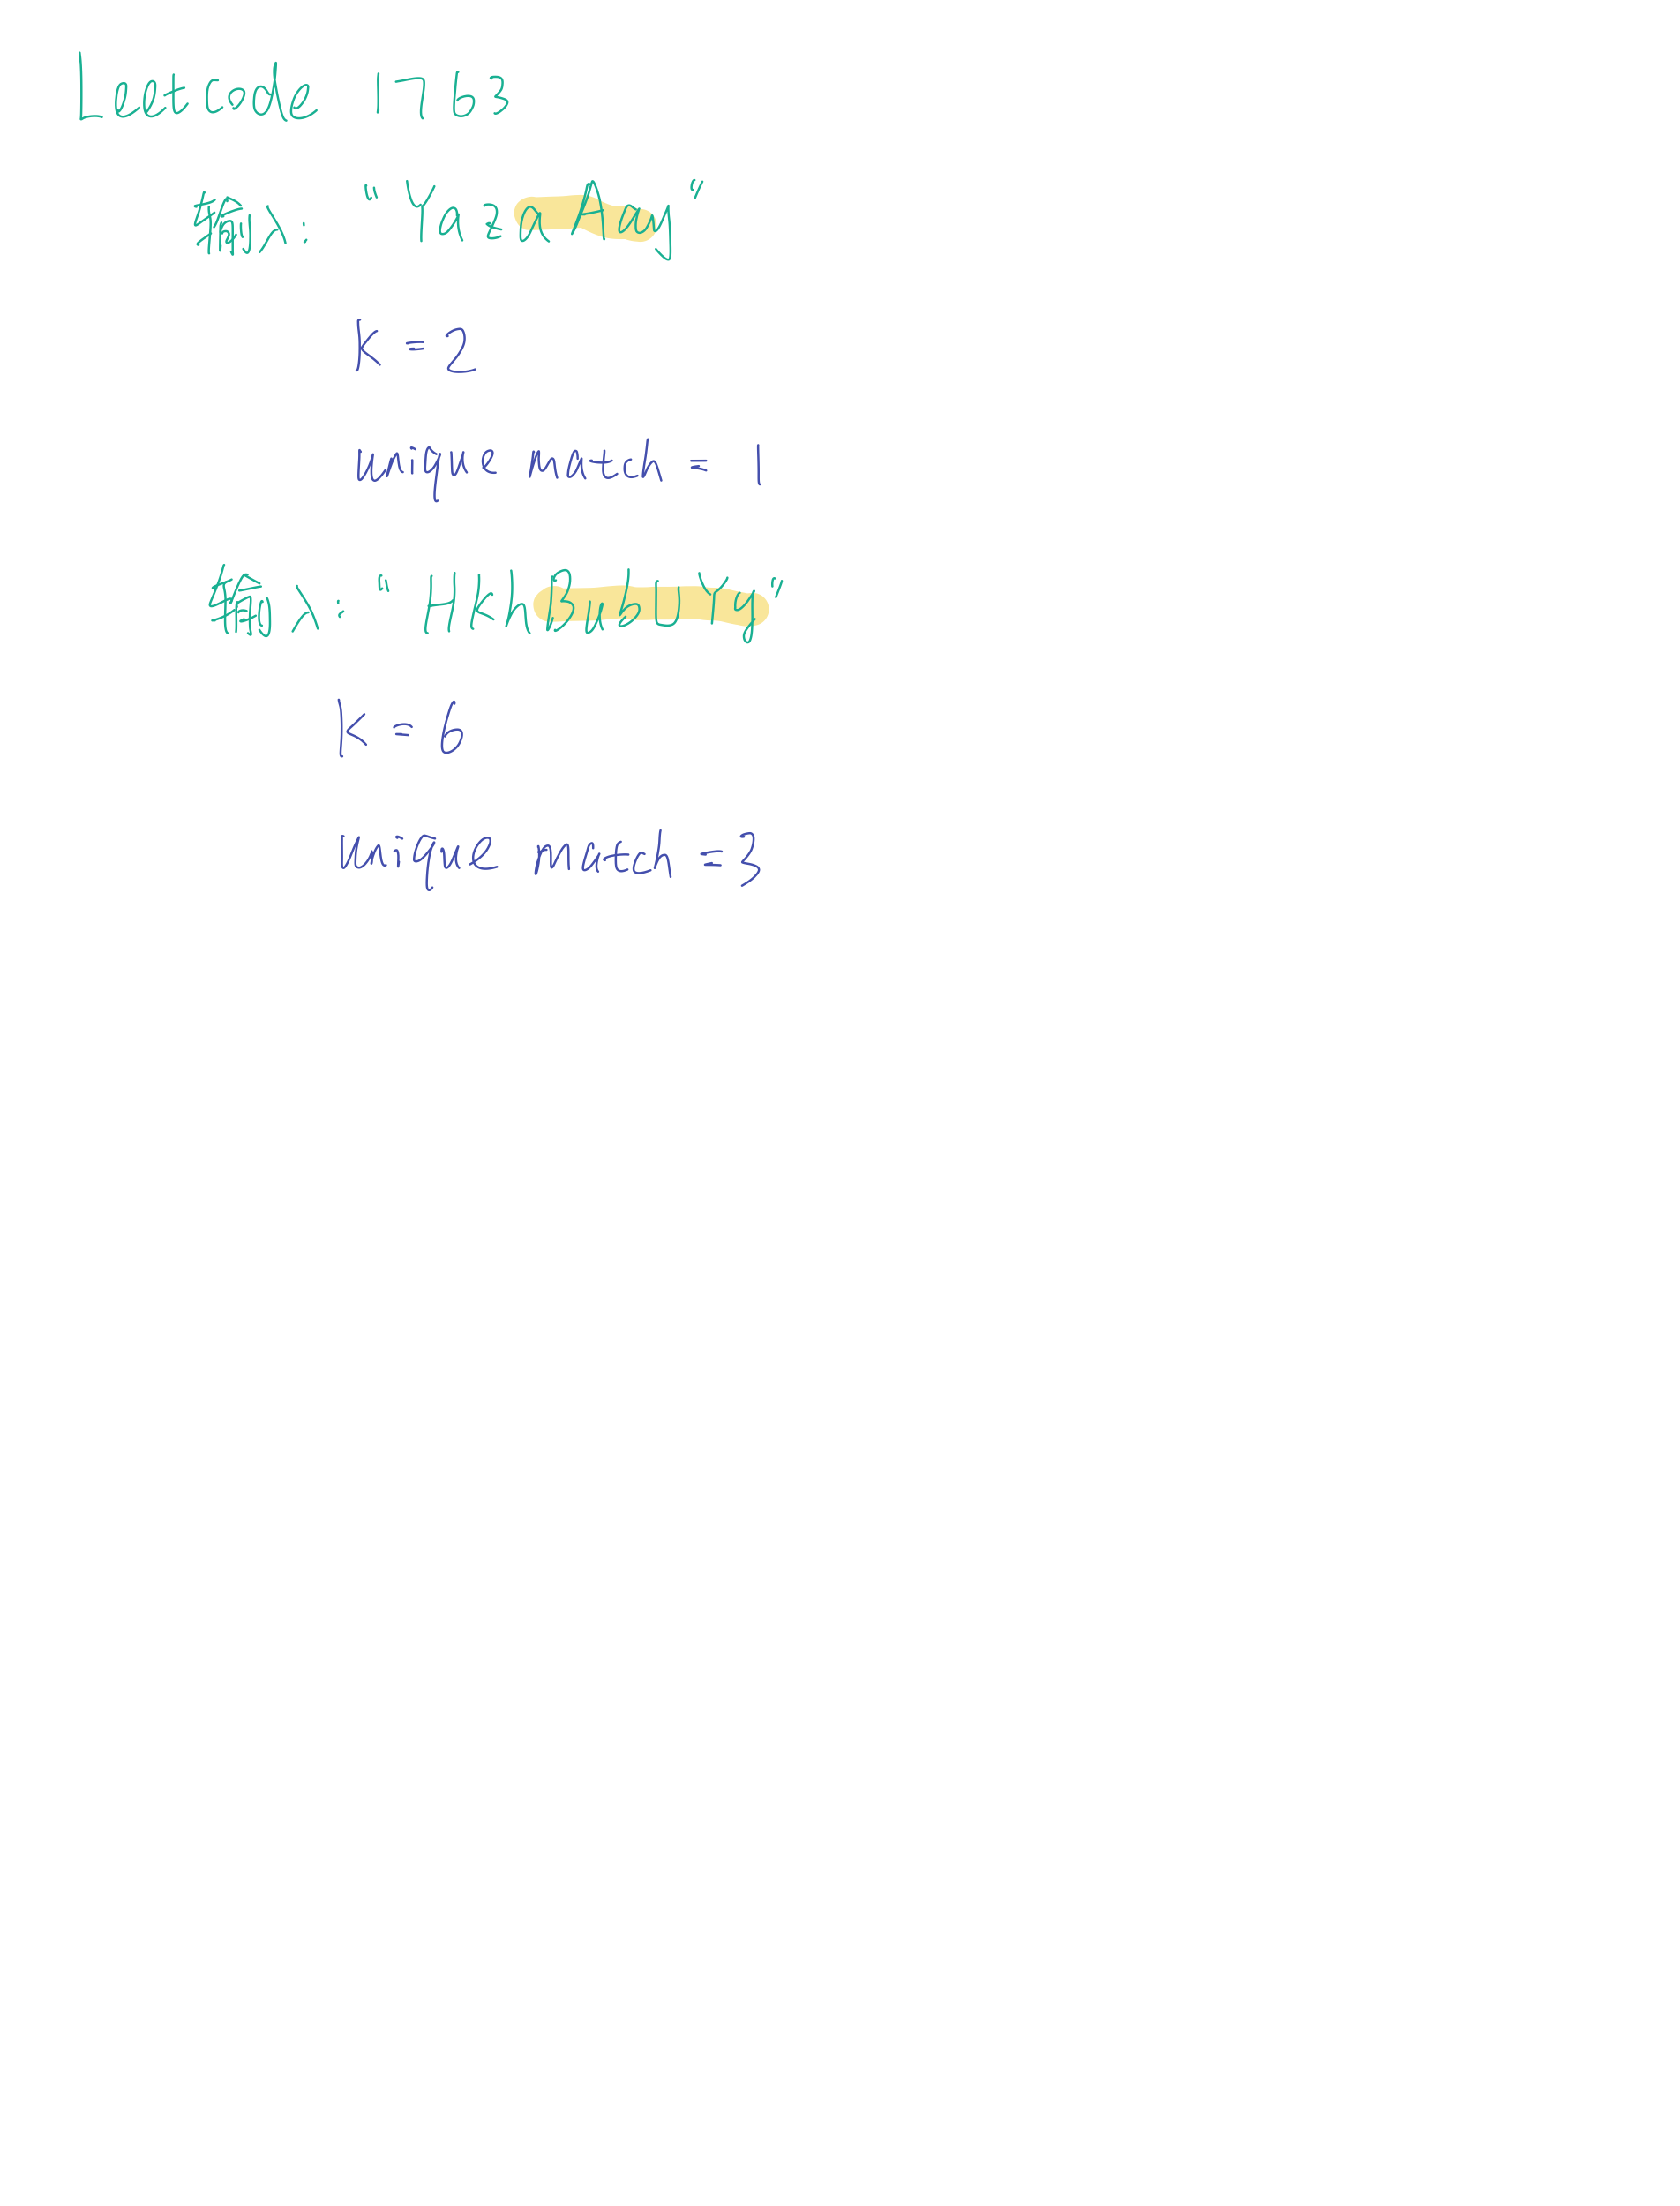 Leetcode 1763
输入: "YazaAay"
K = 2
unique match = 1
输入: "HkhBubUYy"
K = 6
unique match = 3